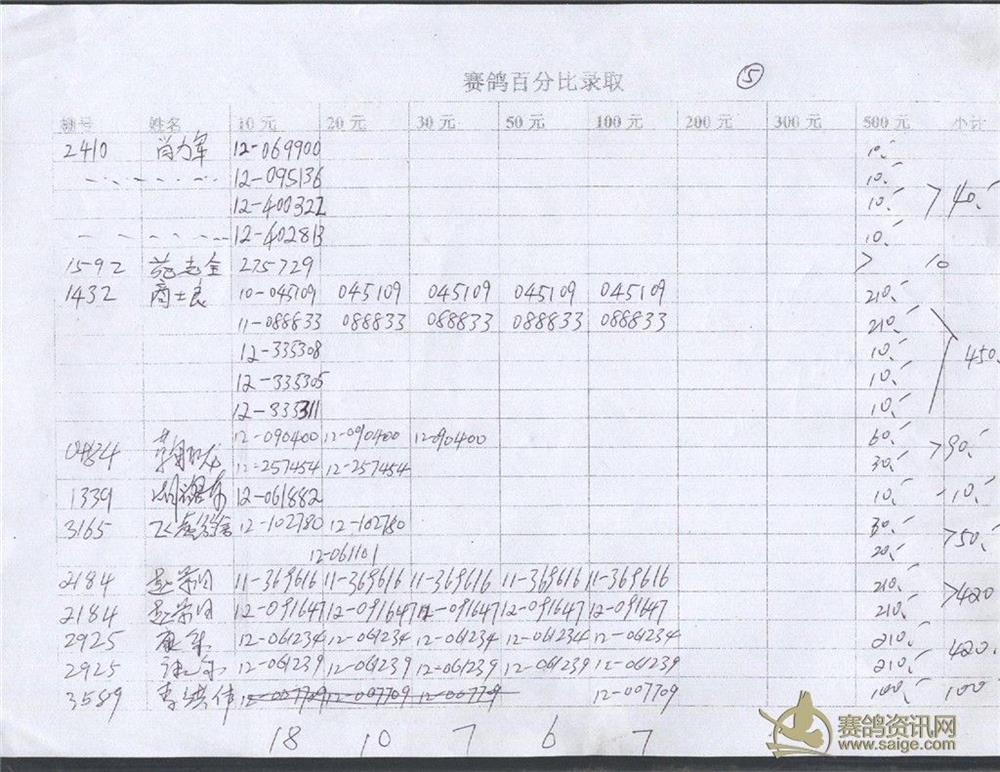 赛鸽百分比录取 ⑤
棚号 姓名 10元 20元 30元 50元 100元 200元 300元 500元 小计
2410 肖力军 12-069900 10.-
12-095136 10.-
12-400322 10.- >40.-
12-402813 10.-
1592 275729 > 10
1432 商士良 10-045109 045109 045109 045109 045109 210.-
11-088833 088833 088833 088833 088833 210.-
12-335308 10.- 450.
12-335305 10.-
12-333311 10.-
0484 12-090400 12-090400 12-090400 60.- >90.-
12-257454 12-257454 30.-
1339 12-061882 10.- -10.-
3165 12-102780 12-102780 30.- >50.-
12-061101 20.-
2184 11-369616 11-369616 11-369616 11-369616 11-369616 210.- >420
2184 12-091647 12-091647 12-091647 12-091647 12-091647 210.-
2925 12-061234 12-061234 12-061234 12-061234 12-061234 210.- 420.-
2925 12-061239 12-061239 12-061239 12-061239 12-061239 210.-
3589 李洪伟 12-007709 12-007709 12-007709 12-007709 100.- 100
18 10 7 6 7
赛鸽资讯网
www.saige.com